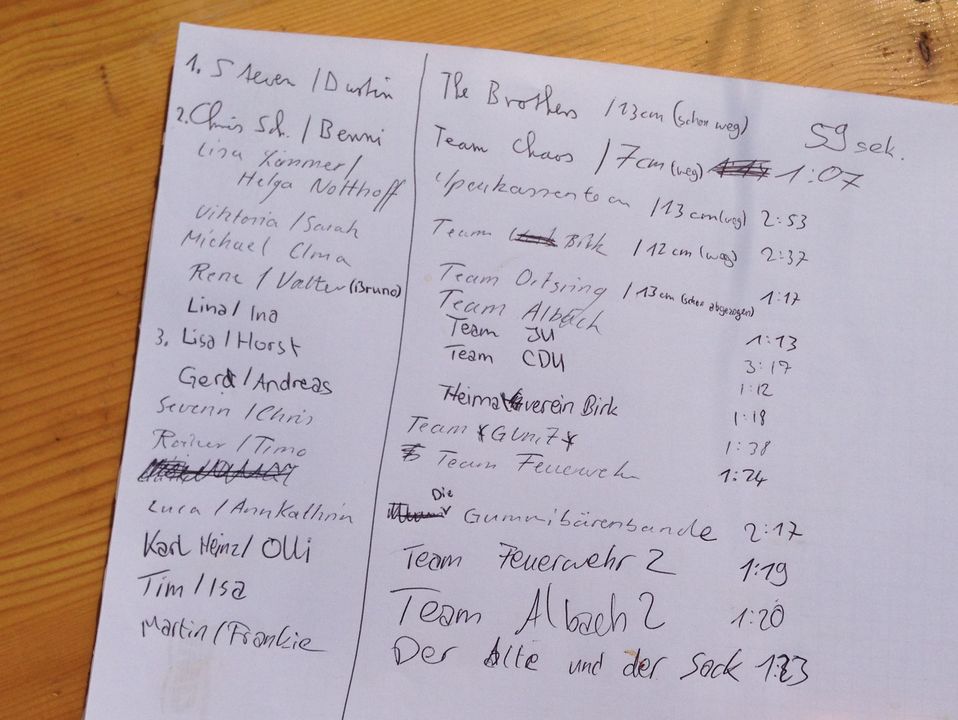 1. Steven / Dustin The Brothers / 13cm (schon weg) 59 sek.
2. Chris Sch. / Benni Team Chaos / 7cm (weg) 1:07
Lisa Kümmer /
Helga Notthoff Sparkassenteam / 13cm (weg) 2:53
Viktoria / Sarah Team Birk / 12cm (weg) 2:37
Michael Uma Team Ortsring / 13cm (schon abgezogen) 1:17
Rene / Valter (Bruno) Team Albach 1:13
Lina / Ina Team JU 3:17
3. Lisa / Horst Team CDU 1:12
Gerd / Andreas Heimatverein Birk 1:18
Severin / Chris Team GUni7 1:38
Rainer / Timo Team Feuerwehr 1:24
Luca / AnnKathrin Die Gummibärenbande 2:17
Karl Heinz / Olli Team Feuerwehr 2 1:19
Tim / Isa Team Albach 2 1:20
Martin / Frankie Der Alte und der Sack 1:23